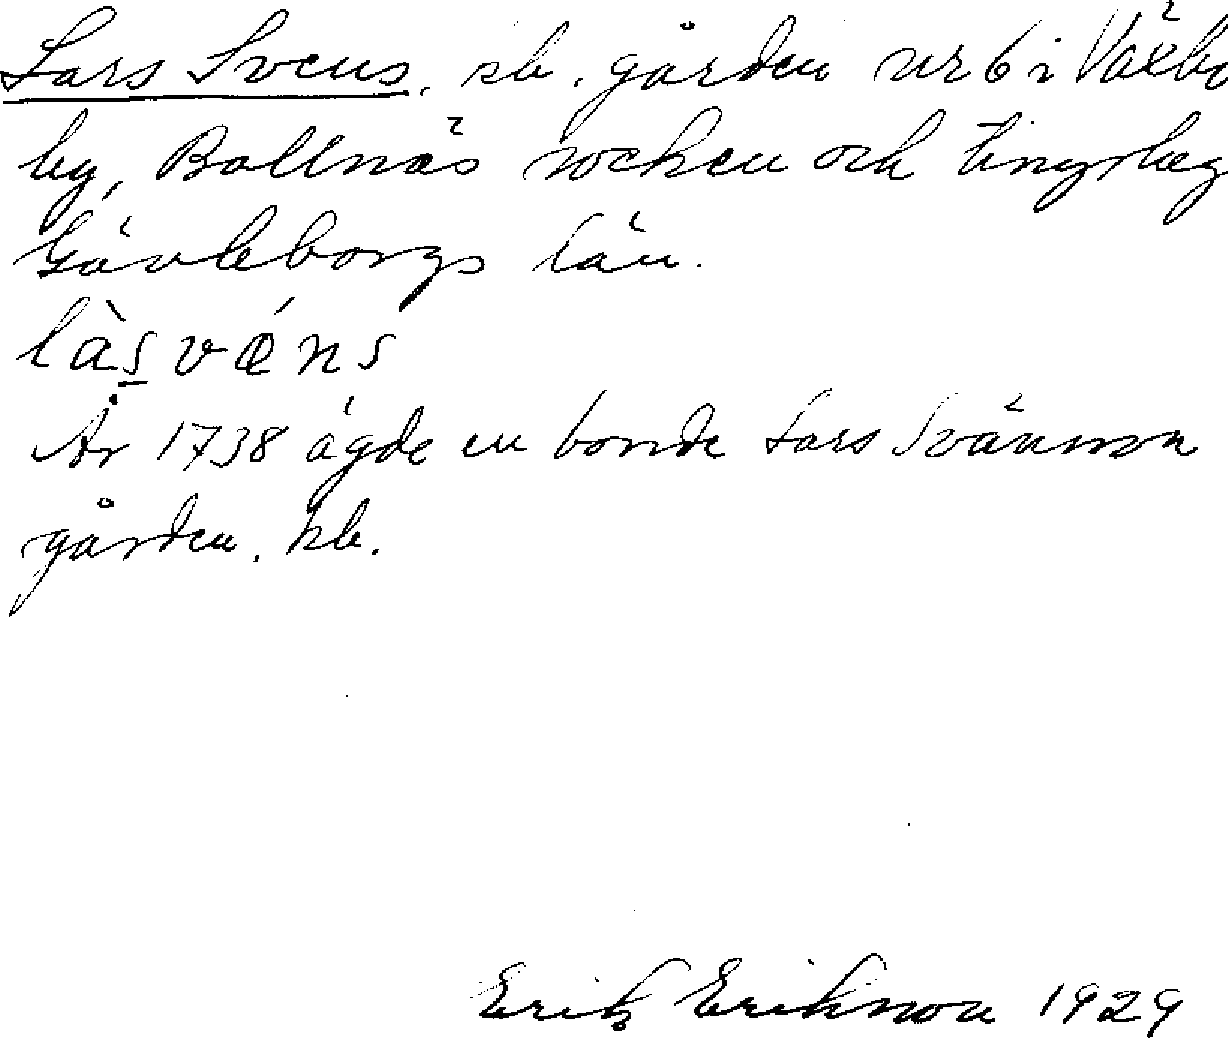 Lars Svens. sb. gården nr 6 i Växbo
by, Bollnäs socken och tingslag
Gävleborgs län.
làs̲vǽns
År 1738 ägde en bonde Lars Svänson
gården. kb.
Erik Erikson 1929